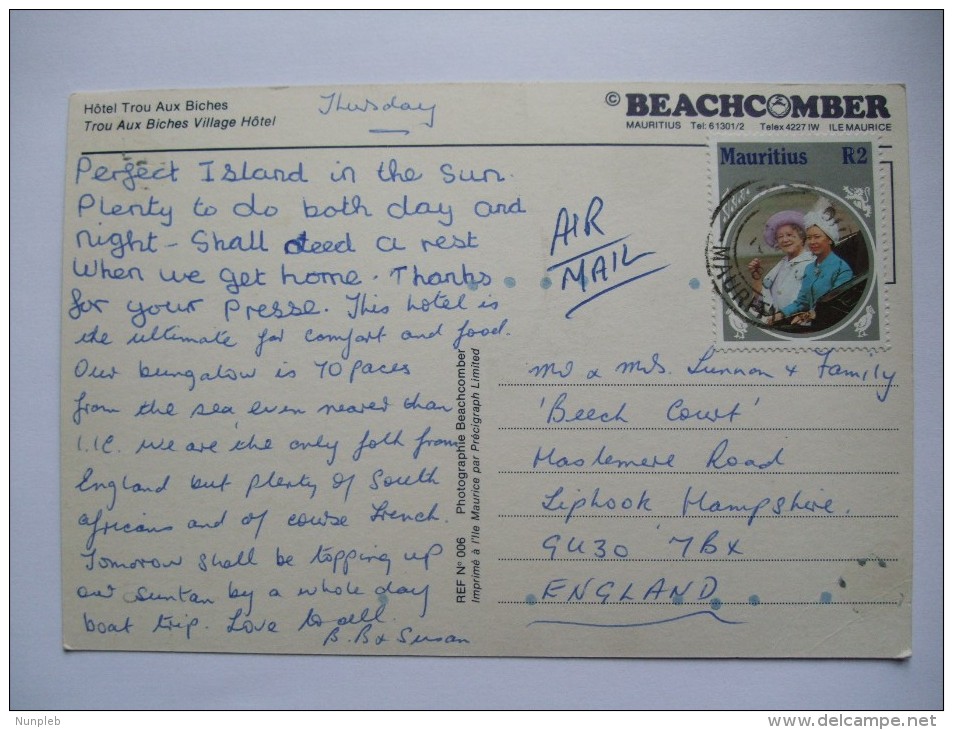 Hôtel Trou Aux Biches
Trou Aux Biches Village Hôtel
Thursday
© BEACHCOMBER
MAURITIUS Tel: 61301/2 Telex 4227 IW ILE MAURICE
Mauritius R2
MAURITI
Perfect Island in the Sun.
Plenty to do both day and
night - Shall need a rest
when we get home. Thanks
for your Presse. This hotel is
the ultimate for comfort and food.
Our bungalow is 70 paces
from the sea even nearer than
I.I.C. we are the only folk from
England but plenty of South
Africans and of course French.
Tomorrow shall be topping up
our suntan by a whole day
boat trip. Love to all.
B. B & Susan
AIR
MAIL
REF Nº 006 Photographie Beachcomber
Imprimé à l'Ile Maurice par Précigraph Limited
Mr & Mrs. Lunnon & Family
'Beech Court'
Haslemere Road
Liphook Hampshire.
GU30 7BX
ENGLAND
Nunpleb
delcampe.net